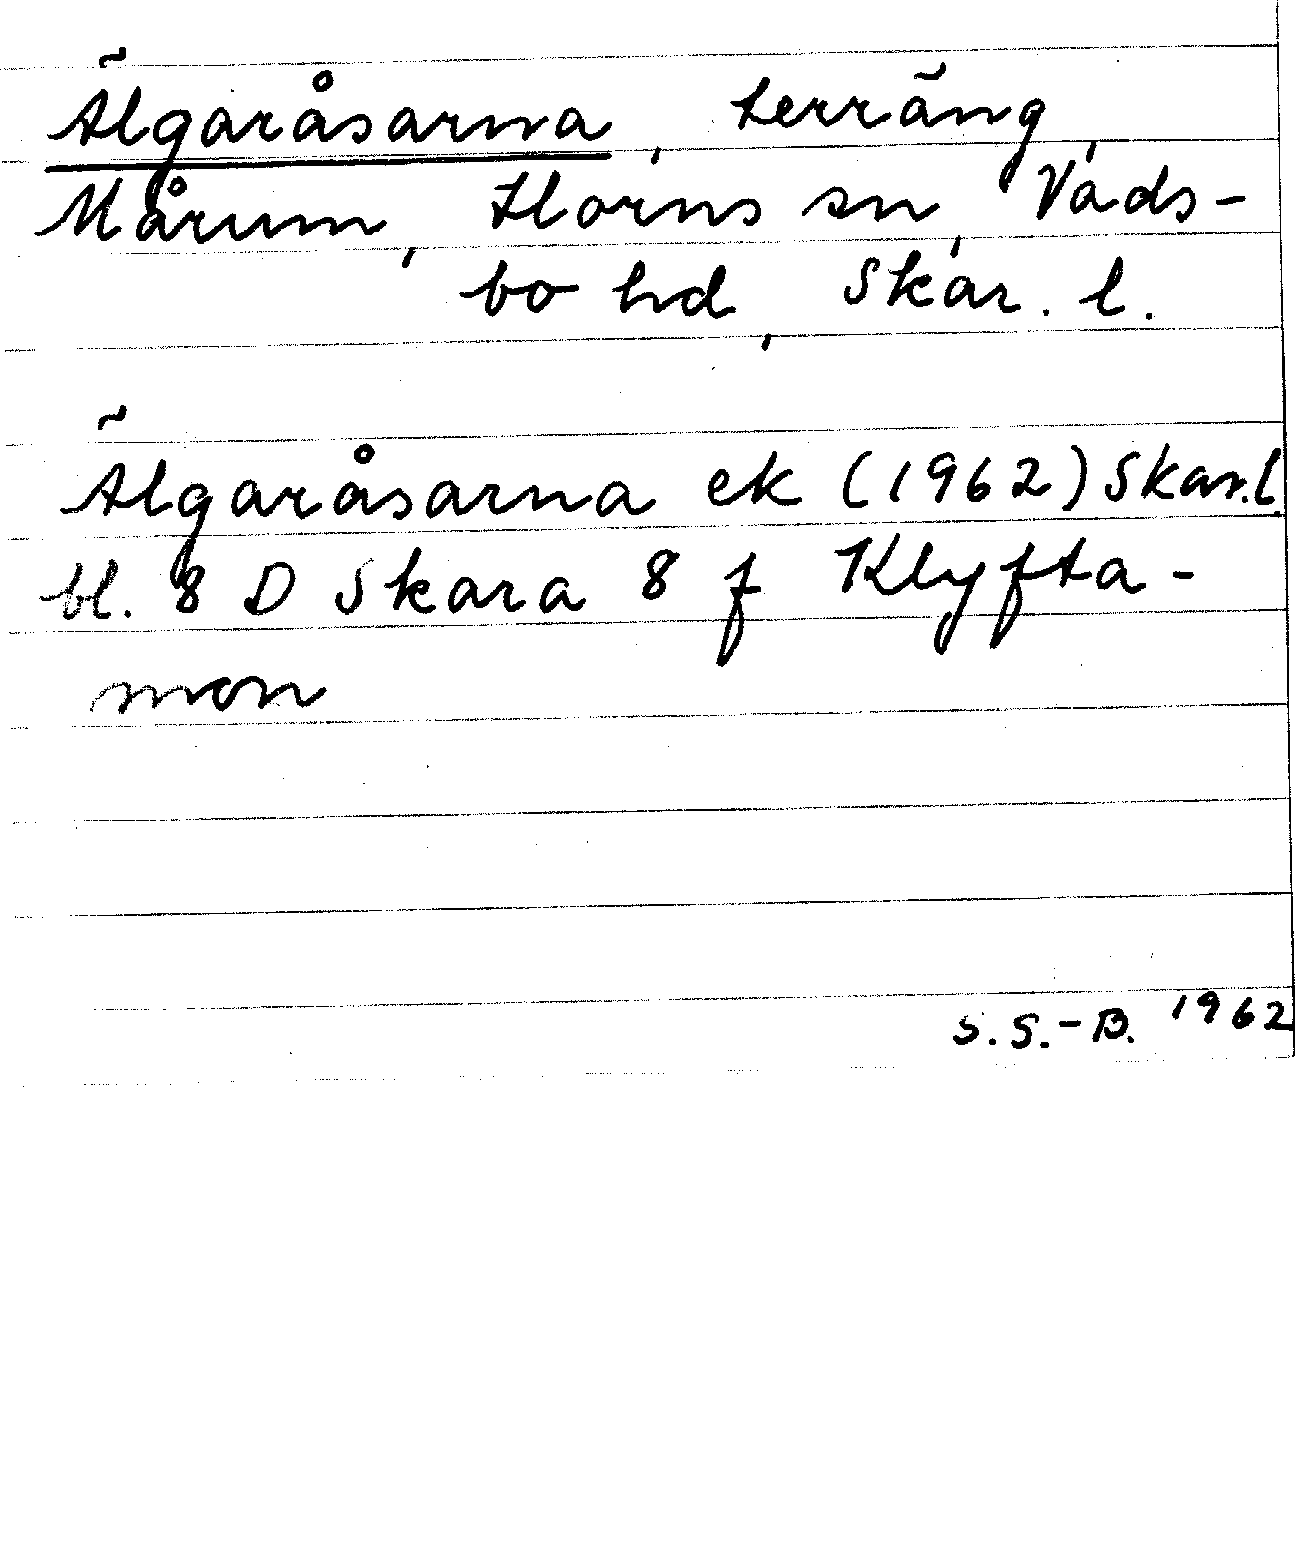 Älgaråsarna, terräng,
Mårum, Horns sn, Vads-
bo hd, Skar. l.
Älgaråsarna ek (1962) Skar. l
bl. 8 D Skara 8 f Klyfta-
mon
S. S.-B. 1962